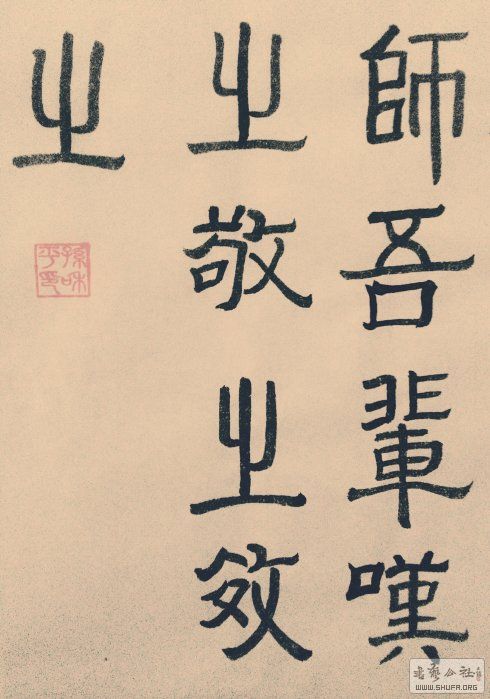 師吾輩嘆
之敬之效
之
書藝公社
WWW.SHUFA.ORG